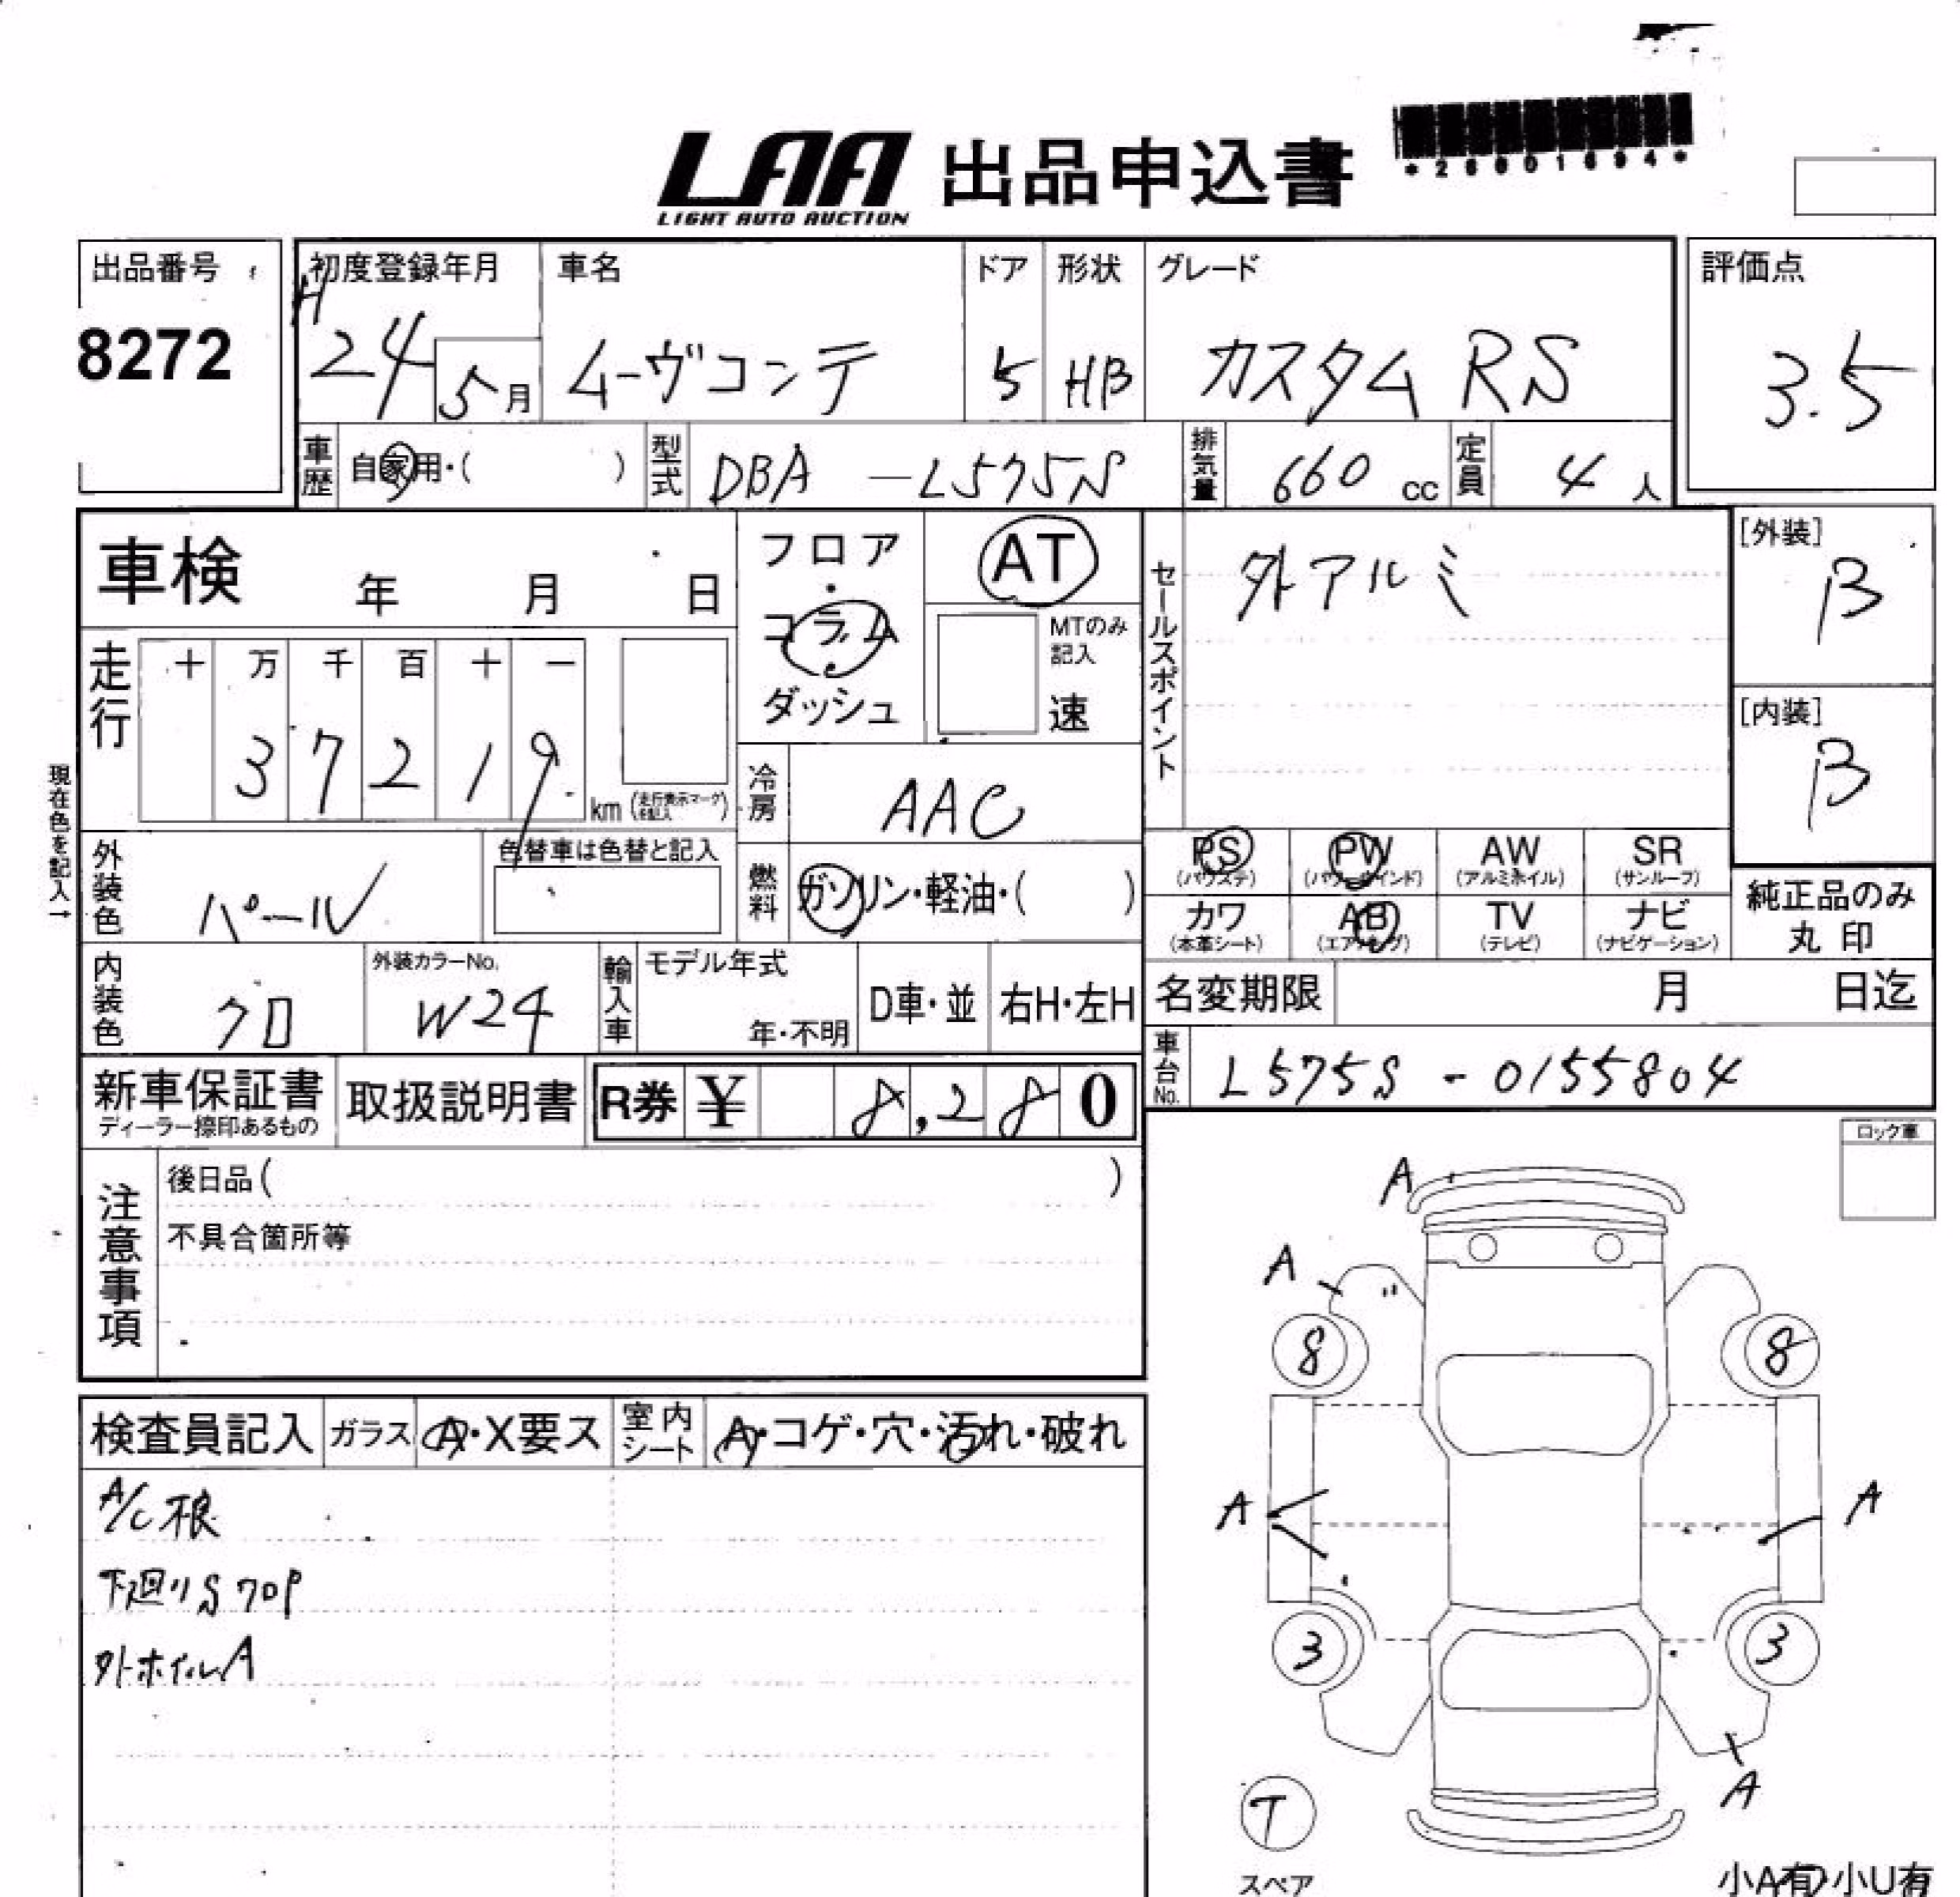 LAA 出品申込書
LIGHT AUTO AUCTION
出品番号 初度登録年月 車名 ドア 形状 グレード 評価点
8272 H24 5月 ムーヴコンテ 5 HB カスタム RS 3.5
車歴 自家用・( ) 型式 DBA -L575S 排気量 660 cc 定員 4 人
車検 年 月 日 フロア・コラム・ダッシュ AT
MTのみ記入 速
セールスポイント 外アルミ
[外装] B
[内装] B
走行 十 万 千 百 十 一
3 7 2 1 9 km (走行表示マーク 記入)
冷房 AAC
現在色を記入→
外装色 パール 色替車は色替と記入
燃料 ガソリン・軽油・( )
PS (パワステ) PW (パワーウインド) AW (アルミホイル) SR (サンルーフ)
カワ (本革シート) AB (エアバッグ) TV (テレビ) ナビ (ナビゲーション)
純正品のみ
丸印
内装色 クロ 外装カラーNo. W24 輸入車 モデル年式 年・不明 D車・並 右H・左H
名変期限 月 日迄
車台No. L575S - 0155804
新車保証書 ディーラー捺印あるもの 取扱説明書 R券 ¥ 8,280
ロック車
注意事項 後日品( )
不具合箇所等
検査員記入 ガラス A・X要ス 室内シート A・コゲ・穴・汚れ・破れ
A/C 根
下廻りS クロP
外ホイルA
A
A
8 8
A A
3 3
A
T
スペア
小A有 小U有